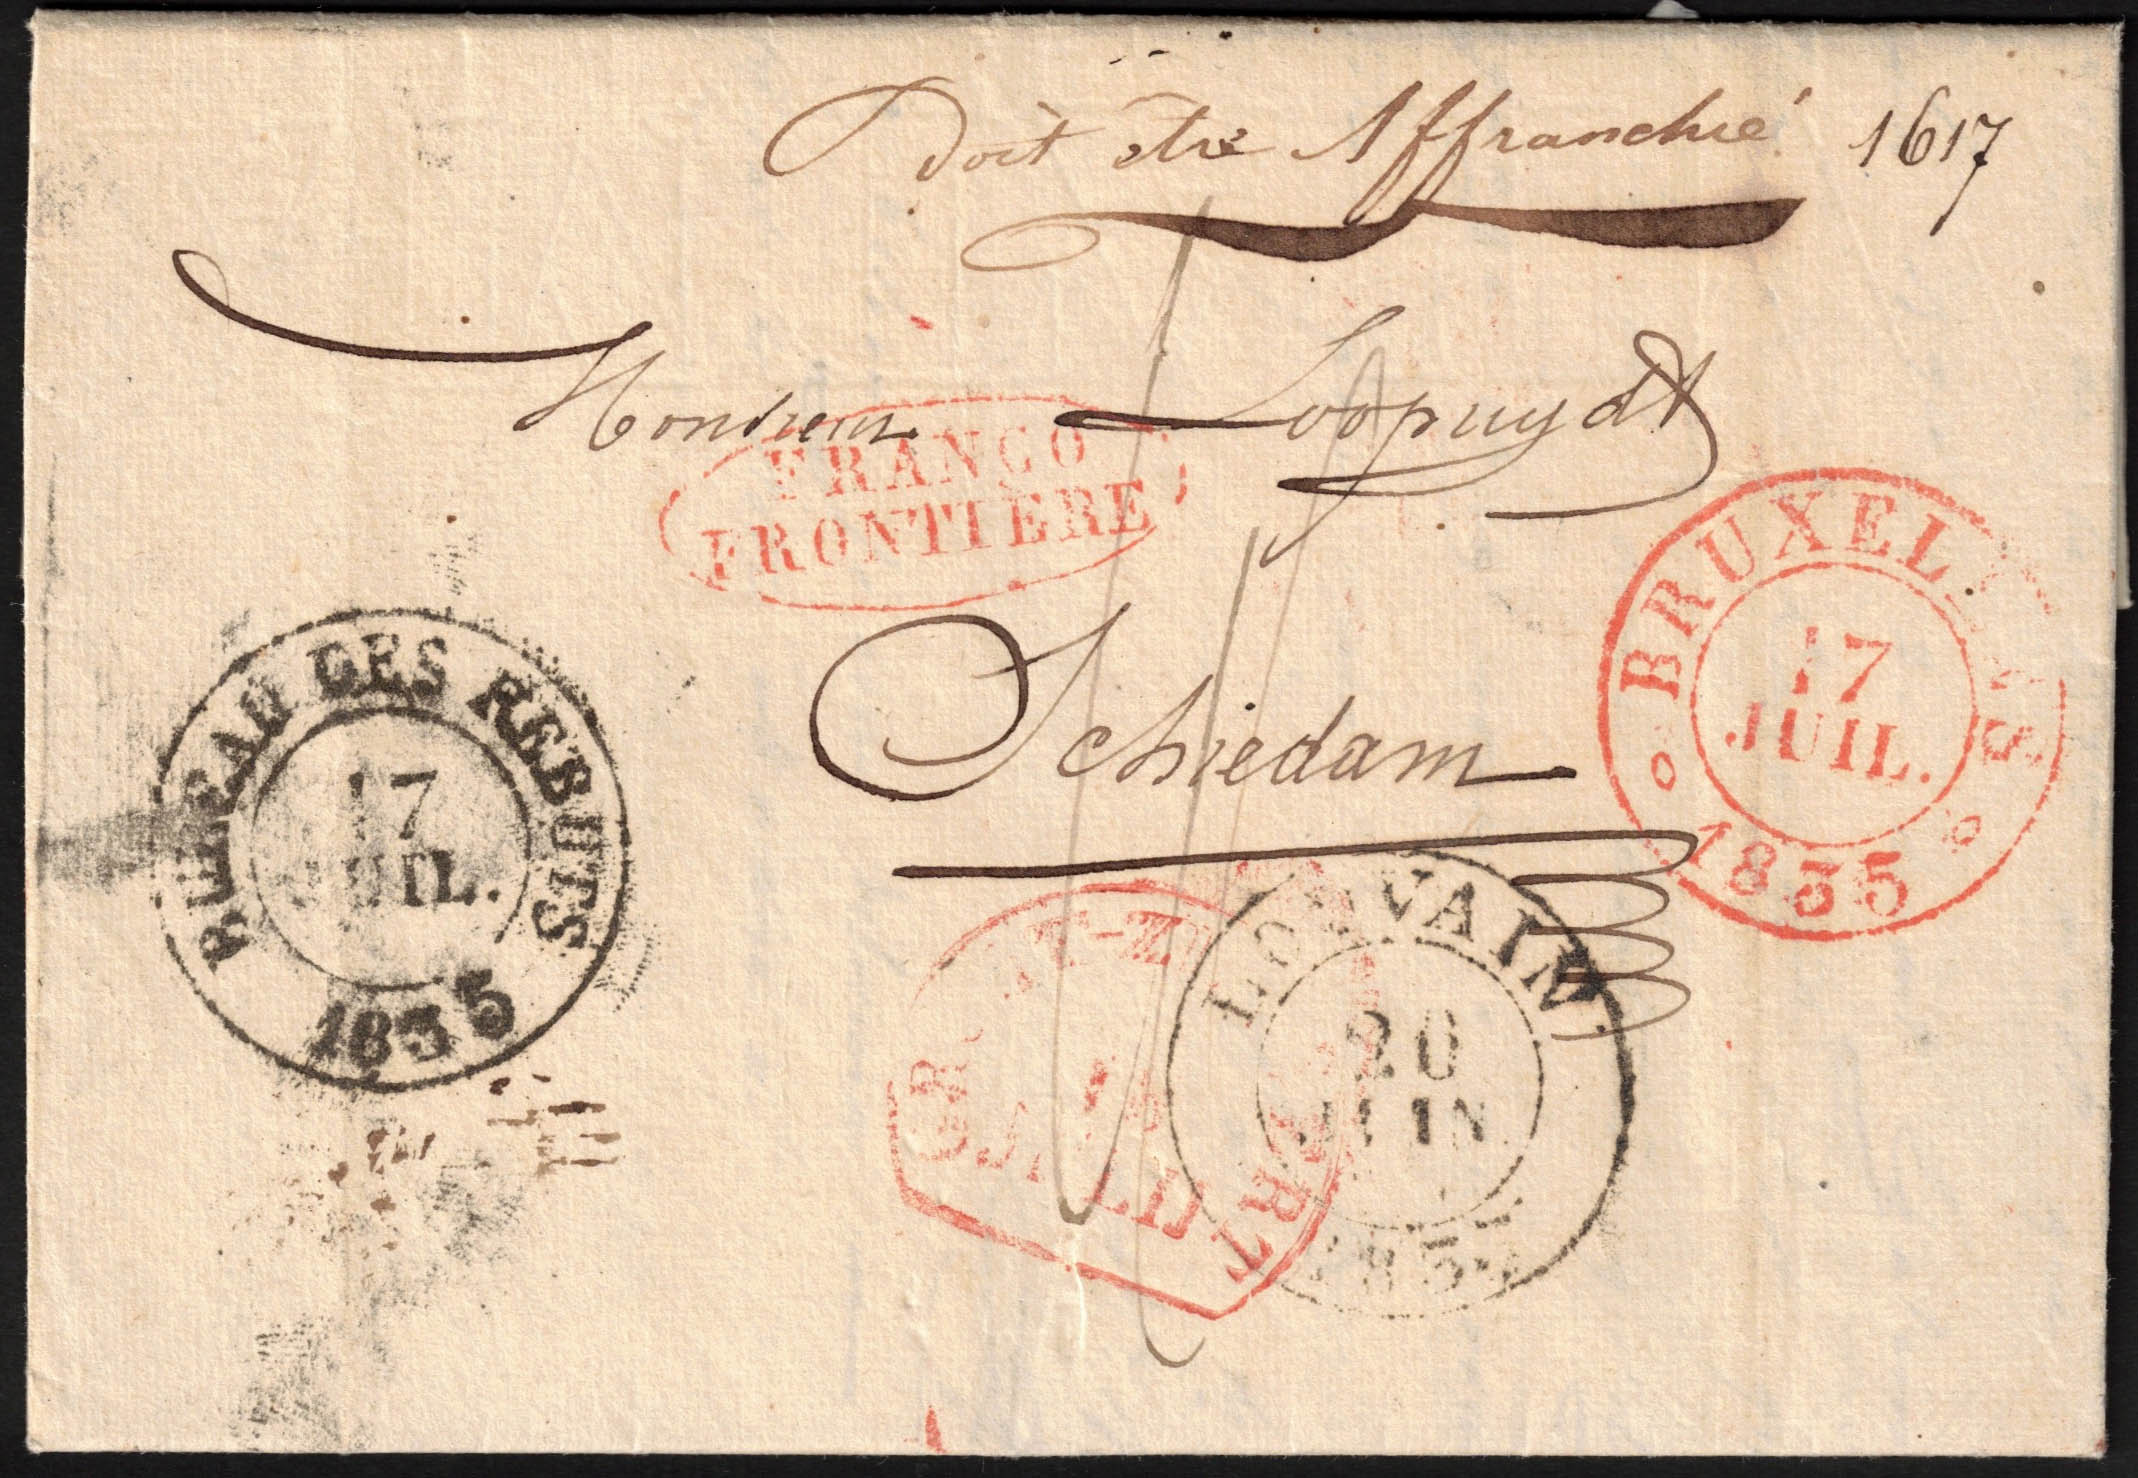 Doit être Affranchie 1617
Monsieur Loopuydt
FRANCO
FRONTIERE
Schiedam
BRUXELLES
17
JUIL.
1835
BUREAU DES REBUTS
17
JUIL.
1835
LOUVAIN
20
JUIN
1835
GR.
RT